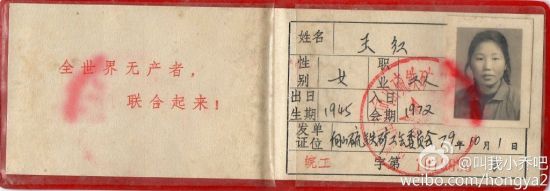 全世界无产者，
联合起来！
姓名 王红
性别 女 职业
出生日期 1945 入会日期 1972
发证单位 向山硫铁矿工会委员会 79年10月1日
皖工 字第
@叫我小乔吧
weibo.com/hongya2